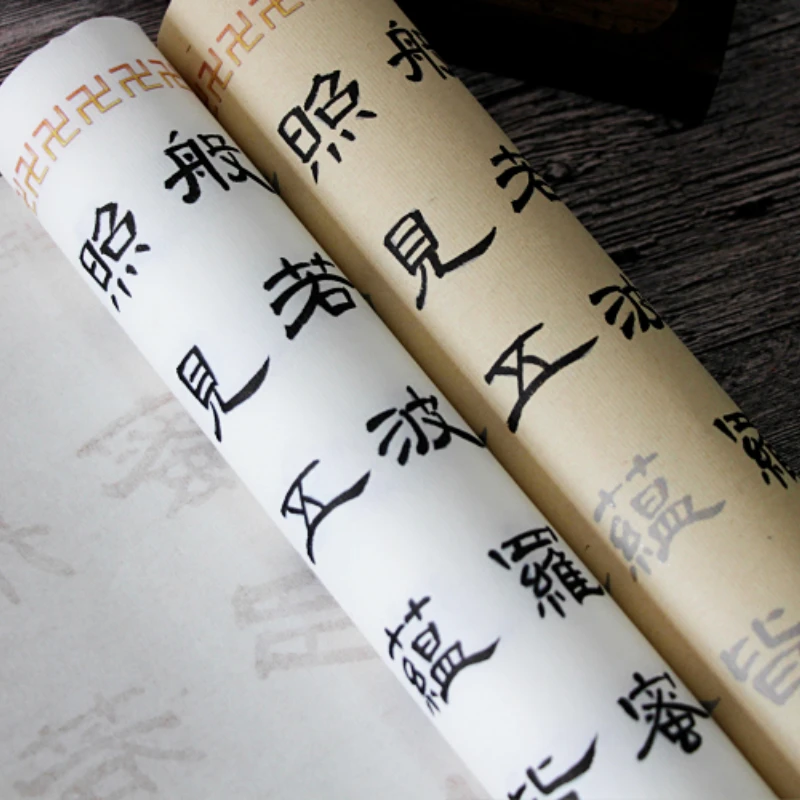 般若波羅
照見五蘊皆
般若波羅蜜
照見五蘊皆